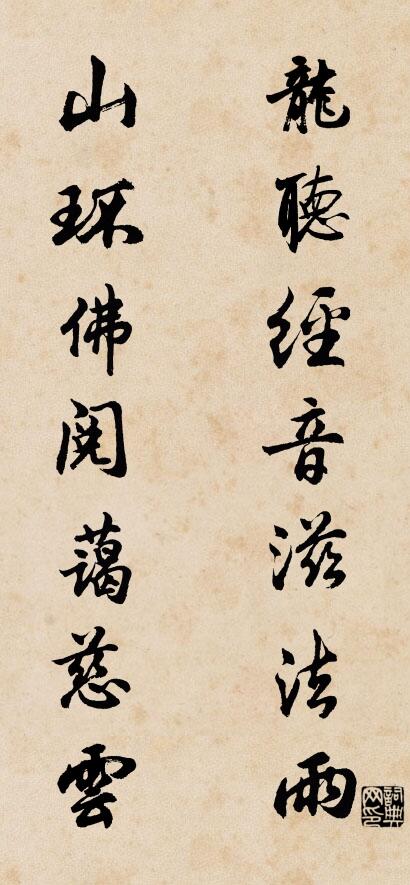 龍聽經音滋法雨
山环佛閣藹慈雲
詞典网印